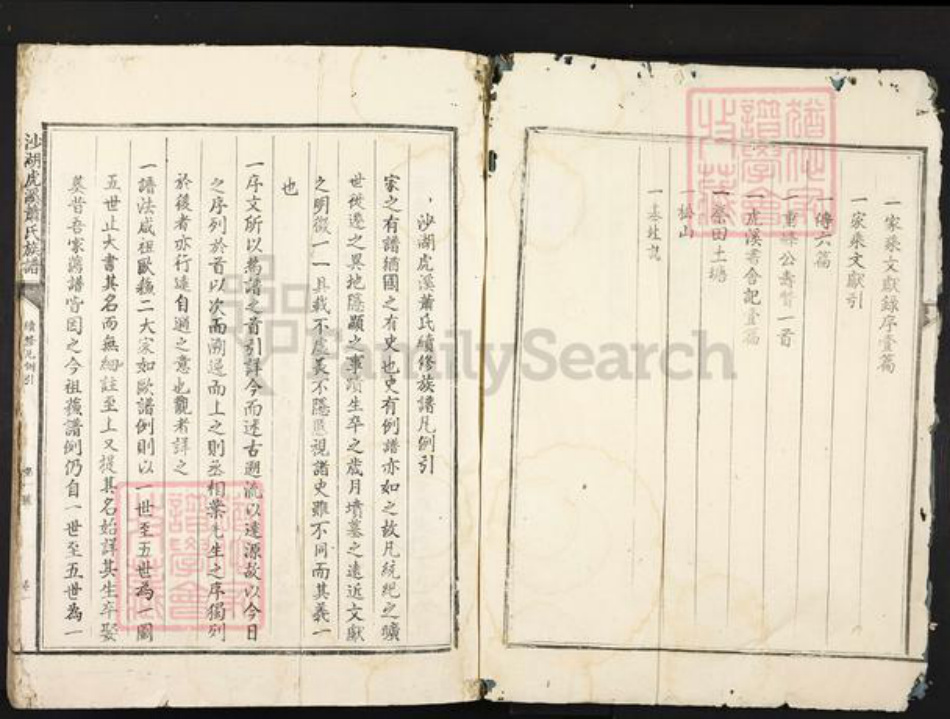 一家乘文獻錄序壹篇
一家乘文獻引
一傳六篇
一重 公壽 一首
一虎溪書舍記壹篇
一祭田土塘
一 山
一基址説
沙湖虎溪蕭氏續修族譜凡例引
家之有譜猶國之有史也史有例譜亦如之故凡統紀之曠
世從遷之異地隱顯之事蹟生卒之歲月墳墓之遠近文獻
之明徵一一具載不虛美不隱惡視諸史雖不同而其義一
也
一序文所以為譜之首引詳今而述古遡流以達源故以今日
之序列於首以次而溯遡而上之則丞相葉先生之序獨列
於後者亦行遠自邇之意也觀者詳之
一譜法咸祖歐蘇二大家如歐譜例則以一世至五世為一圖
五世止大書其名而無細註至上又提其名始詳其生卒娶
葬昔吾家舊譜皆因之今祖蘇譜例仍自一世至五世為一
沙湖虎溪蕭氏族譜
續修凡例引
卷一
FamilySearch